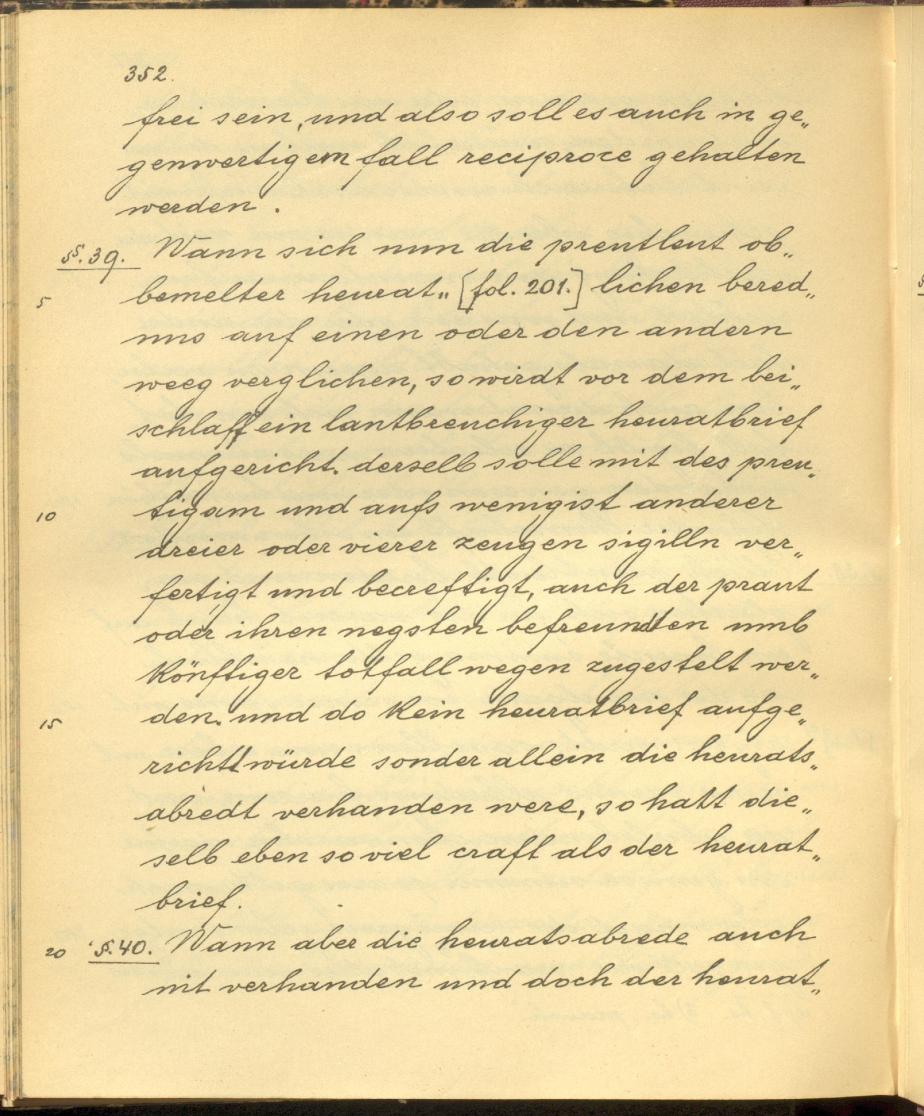 352.
frei sein, und also soll es auch in ge„
genwertigem fall reciproce gehalten
werden.
§. 39. Wann sich nun die preutleut ob„
5 bemelter heurat„ [fol. 201.] lichen bered„
nus auf einen oder den andern
weeg verglichen, so wirdt vor dem bei„
schlaff ein lantbreuchiger heuratbrief
aufgericht. derselb solle mit des preu„
10 tigam und aufs wenigist anderer
dreier oder vierer zeugen sigilln ver„
fertigt und becreftigt, auch der praut
oder ihren negsten befreundten umb
könftiger totfall wegen zugestelt wer„
15 den. und do kein heuratbrief aufge„
richt würde sonder allein die heurats„
abredt verhanden were, so hatt die„
selb eben so viel craft als der heurat„
brief.
20 §. 40. Wann aber die heuratsabrede auch
nit verhanden und doch der heurat„